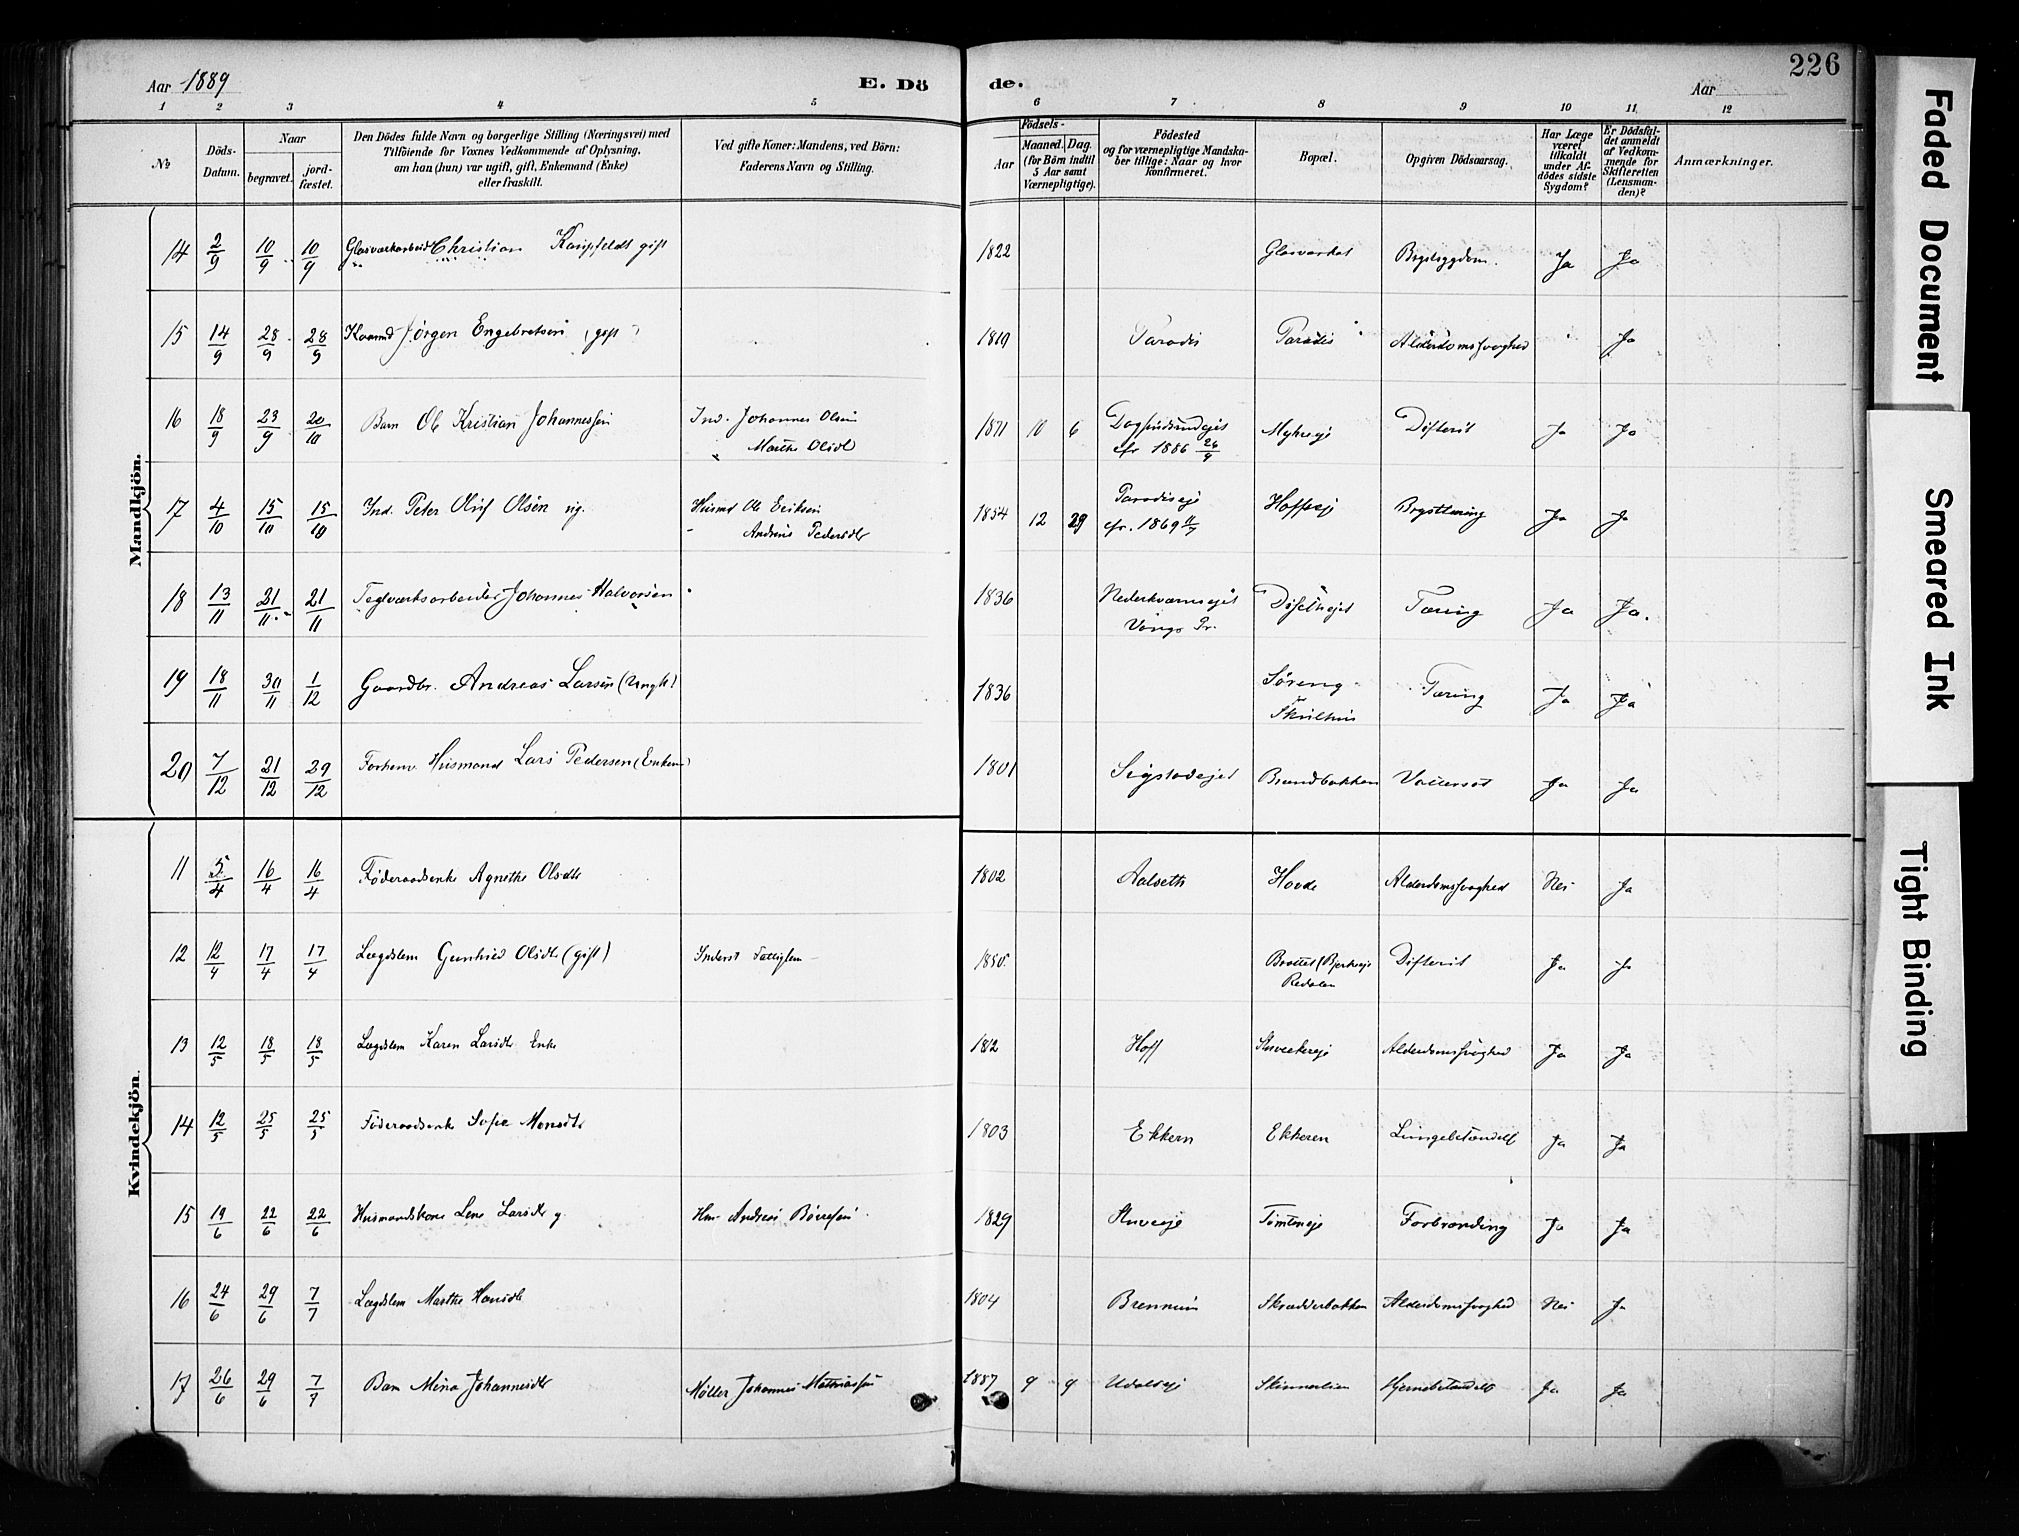 Aar 1889 E. Dö de. Aar 226
1 2 3 4 5 6 7 8 9 10 11 12
No
Döds-Datum.
Naar begravet. jord-fæstet.
Den Dödes fulde Navn og borgerlige Stilling (Næringsvei) med
Tilföiende for Voxnes Vedkommende af Oplysning,
om han (hun) var ugift, gift, Enkemand (Enke)
eller fraskilt.
Ved gifte Koner: Mandens, ved Börn:
Faderens Navn og Stilling.
Födsels-
Aar Maaned. Dag.
(for Börn indtil
5 Aar samt
Værnepligtige).
Födested
og for værnepligtige Mandska-
ber tillige: Naar og hvor
konfirmeret.
Bopæl.
Opgiven Dödsaarsag.
Har Læge
været
tilkaldt
under Af-
dödes sidste
Sygdom?
Er Dödsfal-
det anmeldt
af Vedkom-
mende for
Skifteretten
(Lensman-
den)?
Anmærkninger.
Mandkjön.
14 2/9 10/9 10/9 Glasværkarbeid Christian gift 1822 Glasværket Brystsygdom. Ja Ja
15 14/9 28/9 28/9 Jörgen Engebretsen (gift) 1819 Paradis Paradis Alderdomssvaghed Ja
16 18/9 23/9 20/10 Barn Ole Kristian Johannessen Ind. Johannes Olsen 1871 10 6 Myhreeje Difterit Ja Ja
" Marthe Olsdt cfr 1886 26/9
17 4/10 15/10 15/10 Ind. Peter Oluf Olsen ug. Husmd Ole Eriksen 1854 12 29 Paradiseje Hoffseje Brysttæring Ja Ja
Andrine Pedersdtr cfr. 1869
18 13/11 21/11 21/11 Teglværksarbeider Johannes Halvorsen 1836 Nederkværnsejet Tæring Ja Ja.
Vangs Pr.
19 18/11 30/11 1/12 Gaardbr. Andreas Larsen (Ungk.) 1836 Söreng Tæring Ja Ja
20 7/12 21/12 29/12 Forhenv. Husmand Lars Pedersen (Enkem) 1801 Sigstadejet Brandbakken Vattersot Ja Ja
Kvindekjön.
11 5/4 16/4 16/4 Föderaadsenke Agnethe Olsdtr 1802 Aalseth Hovde Alderdomssvaghed Nei Ja
12 12/4 17/4 17/4 Lægdslem Gunhild Olsdtr (gift) Inderst Fattiglem 1850 Brattet (Bjerkeeje Difterit Ja Ja
Redalen
13 12/5 18/5 18/5 Lægdslem Karen Larsdtr Enke 1812 Hoff Alderdomssvaghed Ja Ja
14 12/5 25/5 25/5 Föderaadsenke Sofie Monsdtr 1803 Ekkern Ekkeren Lungebetændelse Ja Ja
15 19/6 22/6 22/6 Husmandskone Lene Larsdtr g. Hm. Andreas Börresen 1829 Stuveeje Tömteeje Forbrænding Ja Ja
16 24/6 29/6 7/7 Lægdslem Marthe Hansdtr 1804 Brennum Skrædderbakken Alderdomssvaghed Nei Ja
17 26/6 29/6 7/7 Barn Mina Johannesdtr Möller Johannes Mathiassen 1887 9 9 Udalseje Skinnerlien Hjernebetændelse Ja Ja
Faded Document
Smeared Ink
Tight Binding